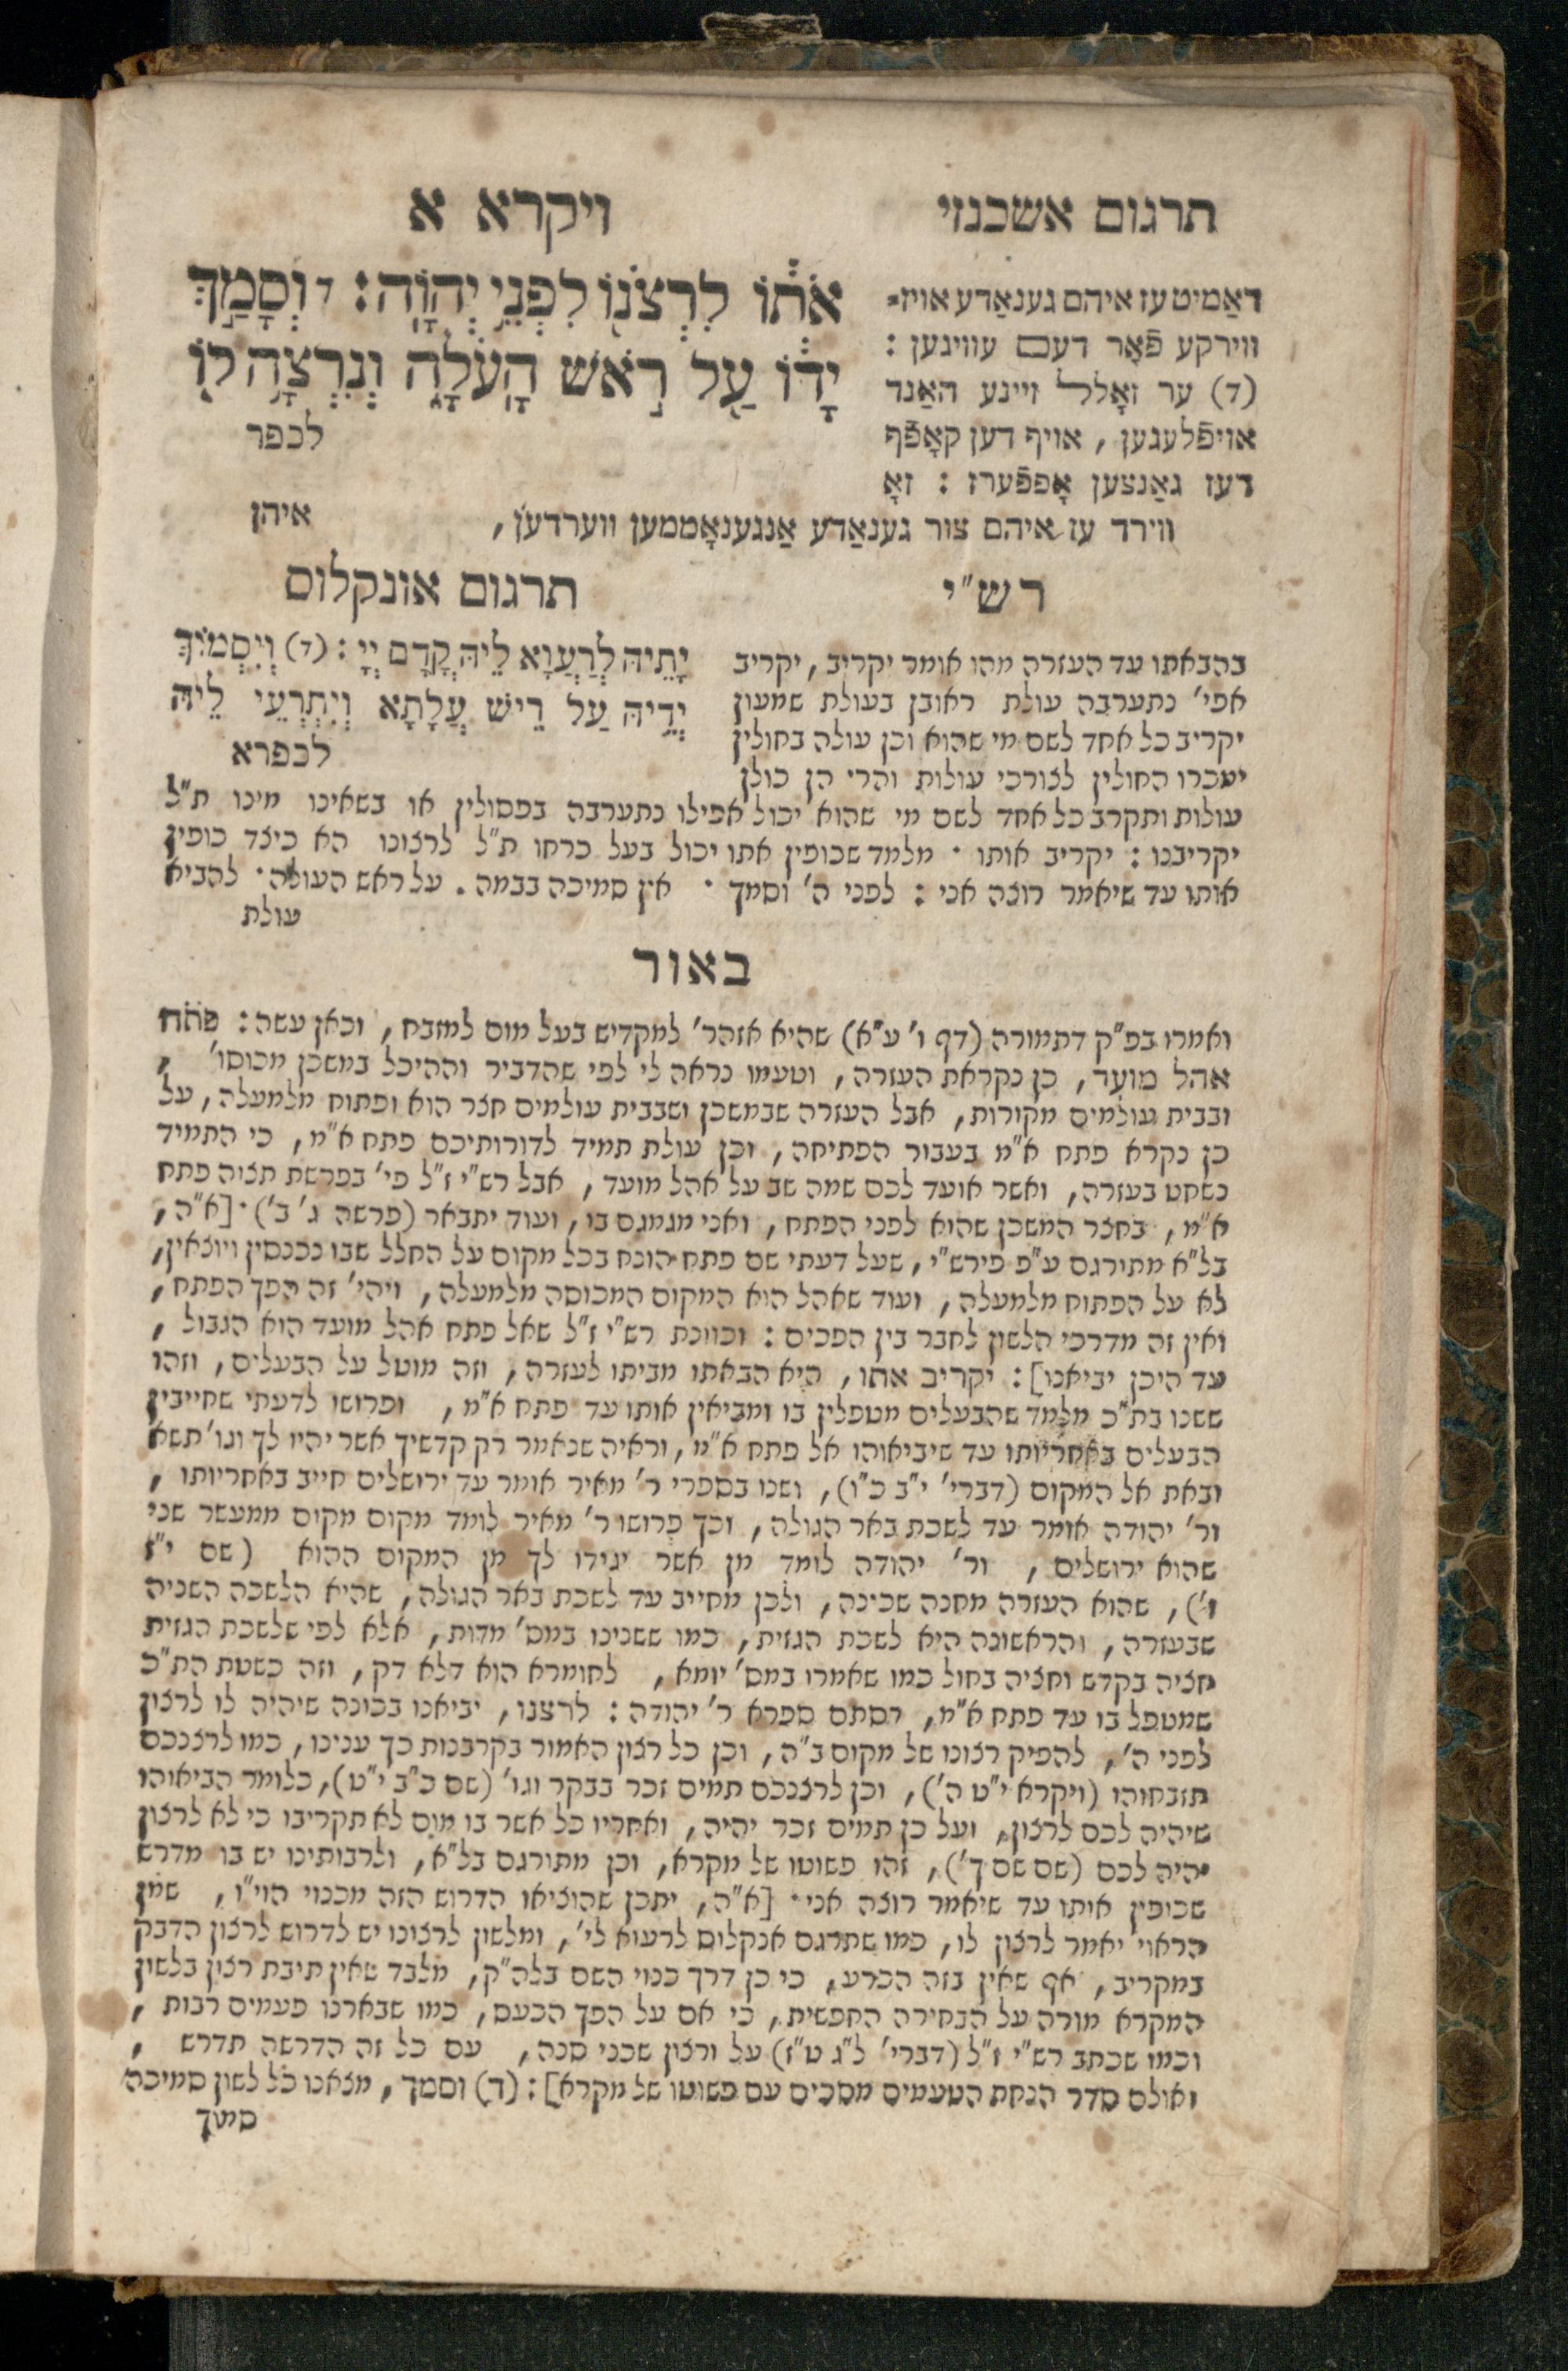 תרגום אשכנזי
ויקרא א
אֹת֔וֹ לִרְצֹנ֖וֹ לִפְנֵ֥י יְהוָֽה׃ ד וְסָמַ֣ךְ
יָד֔וֹ עַ֖ל רֹ֣אשׁ הָֽעֹלָ֑ה וְנִרְצָ֥ה ל֖וֹ
לכפר
דאַמיט עז איהם גענאַדע אויז-
ווירקע פֿאָר דעם עוויגען :
(ד) ער זאָלל זיינע האַנד
אויפֿלעגען, אויף דען קאָפּף
דעז גאַנצען אָפּפֿערז : זאָ
ווירד עז איהם צור גענאַדע אַנגענאָממען ווערדען,
איהן
רש״י
בהבאתו עד העזרה מהו אומר יקריב, יקריב
אפי׳ נתערבה עולת ראובן בעולת שמעון
יקריב כל אחד לשם מי שהוא וכן עולה בחולין
ימכרו החולין לצורכי עולות והרי הן כולן
עולות ותקרב כל אחד לשם מי שהוא יכול אפילו נתערבה בפסולין או בשאינו מינו ת״ל
יקריבנו : יקריב אותו · מלמד שכופין אתו יכול בעל כרחו ת״ל לרצונו הא כיצד כופין
אותו עד שיאמר רוצה אני : לפני ה׳ וסמך · אין סמיכה בבמה. על ראש העולה · להביא
עולת
תרגום אונקלוס
יָתֵיהּ לְרַעֲוָא לֵיהּ קֳדָם יְיָ : (ד) וְיִסְמוֹךְ
יְדֵיהּ עַל רֵישׁ עֲלָתָא וְיִתְרְעֵי לֵיהּ
לכפרא
באור
ואמרו בפ״ק דתמורה (דף ו׳ ע״א) שהיא אזהר׳ למקדיש בעל מום למזבח, וכאן עשה : פתח
אהל מועד, כן נקראת העזרה, וטעמו נראה לי לפי שהדביר וההיכל במשכן מכוסו׳,
ובבית עולמים מקורות, אבל העזרה שבמשכן ושבבית עולמים חצר הוא ופתוח מלמעלה, על
כן נקרא פתח א״מ בעבור הפתיחה, וכן עולת תמיד לדורותיכם פתח א״מ, כי התמיד
נשחט בעזרה, ואשר אועד לכם שמה שב על אהל מועד, אבל רש״י ז״ל פי׳ בפרשת תצוה פתח
א״מ, בחצר המשכן שהוא לפני הפתח, ואני מגמגם בו, ועוד יתבאר (פרשה ג׳ ב׳) · [א״ה,
בל״א מתורגם ע״פ פירש״י, שעל דעתי שם פתח הונח בכל מקום על החלל שבו נכנסין ויוצאין,
לא על הפתוח מלמעלה, ועוד שאהל הוא המקום המכוסה מלמעלה, ויהי׳ זה הפך הפתח,
ואין זה מדרכי הלשון לחבר בין הפכים : וכוונת רש״י ז״ל שאל פתח אהל מועד הוא הגבול,
עד היכן יביאנו] : יקריב אתו, היא הבאתו מביתו לעזרה, וזה מוטל על הבעלים, וזהו
ששנו בת״כ מלמד שהבעלים מטפלין בו ומביאין אותו עד פתח א״מ, ופרושו לדעתי שחייבין
הבעלים באחריותו עד שיביאוהו אל פתח א״מ, וראיה שנאמר רק קדשיך אשר יהיו לך וגו׳ תשא
ובאת אל המקום (דברי׳ י״ב כ״ו), ושנו בספרי ר׳ מאיר אומר עד ירושלים חייב באחריותו,
ור׳ יהודה אומר עד לשכת באר הגולה, וכך פרושו ר׳ מאיר לומד מקום מקום ממעשר שני
שהוא ירושלים, ור׳ יהודה לומד מן אשר יגידו לך מן המקום ההוא (שם י״ז
י׳), שהוא העזרה מחנה שכינה, ולכן מחייב עד לשכת באר הגולה, שהיא הלשכה השניה
שבעזרה, והראשונה היא לשכת הגזית, כמו ששנינו במס׳ מדות, אלא לפי שלשכת הגזית
חציה בקדש וחציה בחול כמו שאמרו במס׳ יומא, לחומרא הוא דלא דק, וזה כשטת הת״כ
שמטפל בו עד פתח א״מ, דסתם ספרא ר׳ יהודה : לרצנו, יביאנו בכונה שיהיה לו לרצון
לפני ה׳, להפיק רצונו של מקום ב״ה, וכן כל רצון האמור בקרבנות כך ענינו, כמו לרצנכם
תזבחוהו (ויקרא י״ט ה׳), וכן לרצנכם תמים זכר בבקר וגו׳ (שם כ״ב י״ט), כלומר הביאוהו
שיהיה לכם לרצון, ועל כן תמים זכר יהיה, ואחריו כל אשר בו מום לא תקריבו כי לא לרצון
יהיה לכם (שם שם ך׳), זהו פשוטו של מקרא, וכן מתורגם בל״א, ולרבותינו יש בו מדרש
שכופין אותו עד שיאמר רוצה אני · [א״ה, יתכן שהוציאו הדרוש הזה מכנוי הוי״ו, שמן
הראוי יאמר לרצון לו, כמו שתרגם אנקלוס לרעוא לי׳, ומלשון לרצונו יש לדרוש לרצון הדבק
במקריב, אף שאין בזה הכרע, כי כן דרך כנוי השם בלה״ק, מלבד שאין תיבת רצון בלשון
המקרא מורה על הבחירה החפשית, כי אם על הפך הכעס, כמו שבארנו פעמים רבות,
וכמו שכתב רש״י ז״ל (דברי׳ ל״ג ט״ז) על ורצון שכני סנה, עם כל זה הדרשה תדרש,
ואולם סדר הנחת הטעמים מסכים עם פשוטו של מקרא] : (ד) וסמך, מצאנו כל לשון סמיכה
סמך